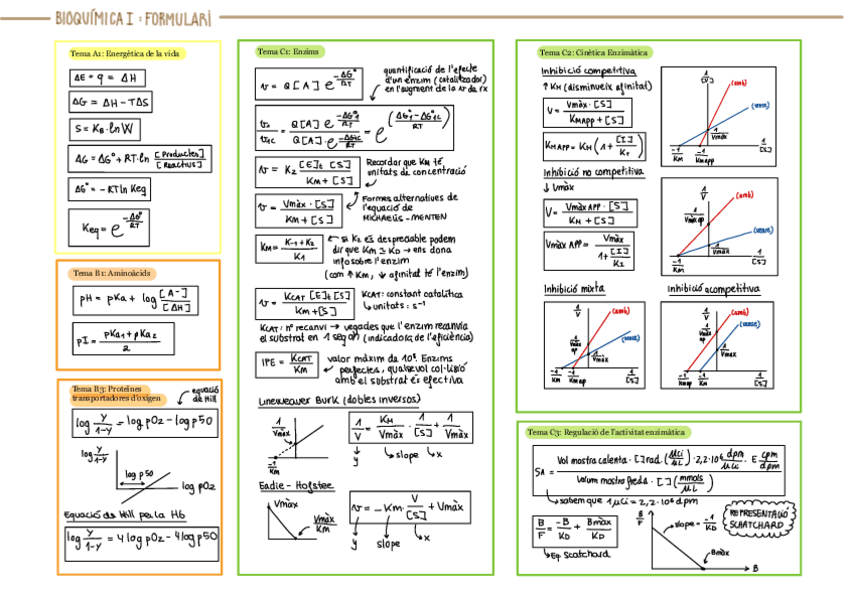 BIOQUÍMICA I : FORMULARI
Tema A1: Energètica de la vida
ΔE = q = ΔH
ΔG = ΔH - TΔS
S = KB·lnW
ΔG = ΔG° + RT·ln [Productes]/[Reactius]
ΔG° = -RT ln Keq
Keq = e^(-ΔG°/RT)
Tema B1: Aminoàcids
pH = pKa + log [A-]/[AH]
pI = (pKa1 + pKa2)/2
Tema B3: Proteïnes
transportadores d'oxigen
equació
de Hill
log Y/1-Y = log pO2 - log p50
log Y/1-Y
log p50
log pO2
Equació de Hill per la Hb
log Y/1-Y = 4 log pO2 - 4 log p50
Tema C1: Enzims
v = Q[A] e^(-ΔG°/RT)
quantificació de l'efecte
d'un enzim (catalitzador)
en l'augment de la v de rx
v = K2 [E]t [S]/KM + [S]
Recordar que KM té
unitats de concentració
v = Vmàx · [S]/KM + [S]
Formes alternatives de
l'equació de
MICHAELIS-MENTEN
KM = K-1 + K2/K1
si K2 és despreciable podem
dir que KM ≃ KD → ens dona
info sobre l'enzim
(com ↑ KM, ↓ afinitat té l'enzim)
v = KCAT [E]t [S]/KM + [S]
KCAT: constant catalítica
↳ unitats: s-1
KCAT: nº recanvi → vegades que l'enzim recanvia
el substrat en 1 segon (indicadora de l'eficiència)
IPE = KCAT/KM
valor màxim de 10⁸. Enzims
perfectes, qualsevol col·lisió
amb el substrat és efectiva
Lineweaver Burk (dobles inversos)
1/Vmàx
-1/KM
1/V = KM/Vmàx · 1/[S] + 1/Vmàx
y slope x
Eadie - Hofstee
Vmàx
Vmàx/KM
v = -KM · V/[S] + Vmàx
y slope x
Tema C2: Cinètica Enzimàtica
Inhibició competitiva
↑ KM (disminueix afinitat)
V = Vmàx · [S]/KMAPP + [S]
KMAPP = KM (1 + [I]/KI)
1/[V]
(amb)
(sense)
1/Vmàx
-1/KM
-1/KMapp
1/[S]
Inhibició no competitiva
↓ Vmàx
V = VmàxAPP · [S]/KM + [S]
VmàxAPP = Vmàx/1 + [I]/KI
1/V
(amb)
1/Vmàx ap
(sense)
1/Vmàx
-1/KM
1/[S]
Inhibició mixta
1/V
(amb)
1/Vmàx ap
(sense)
1/Vmàx
-1/KM
-1/KMapp
1/[S]
Inhibició acompetitiva
1/V
(amb)
1/Vmàx ap
(sense)
1/Vmàx
-1/KMapp
-1/KM
1/[S]
Tema C3: Regulació de l'activitat enzimàtica
SA = Vol mostra calenta · [ ]rad. (μCi/μL) · 2,2·10⁶ dpm/μCi · E cpm/dpm
Volum mostra freda · [ ] (mmols/μL)
↳ sabem que 1 μCi = 2,2·10⁶ dpm
B/F = -B/KD + Bmàx/KD
↳ Eq. Scatchard
B/F
slope = -1/KD
Bmàx
B
REPRESENTACIÓ
SCATCHARD